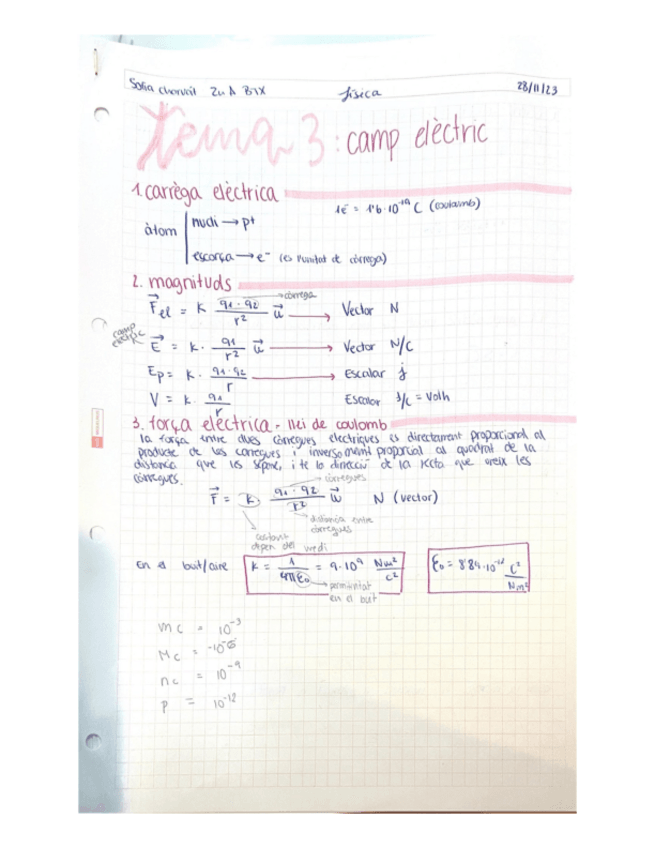 Sofia Charvait 2n A BTX física 28/11/23
Tema 3: camp elèctric
1. carrèga elèctrica
1e⁻ = 1'6·10⁻¹⁹ C (coulomb)
àtom
nucli → p⁺
escorça → e⁻ (és l'unitat de càrrega)
2. magnituds
→ càrrega
F⃗el = K q1·q2 / r² u⃗ → Vector N
camp elèctric
E⃗ = K· q1 / r² u⃗ → Vector N/C
Ep = K· q1·q2 / r → Escalar j
V = K· q1 / r Escalar J/c = Volt
3. força elèctrica - llei de coulomb
la força entre dues càrregues elèctriques és directament proporcional al
producte de les càrregues i inversament proporcional al quadrat de la
distància que les separa, i té la direcció de la recta que uneix les
càrregues.
→ càrregues
F⃗ = K· q1·q2 / r² u⃗ N (vector)
distància entre
càrregues
constant
depen del medi
En el buit/aire K = 1 / 4πε₀ = 9·10⁹ Nm² / C² ε₀ = 8'84·10⁻¹² C² / Nm²
permitivitat
en el buit
mc = 10⁻³
Mc = -10⁻⁶
nc = 10⁻⁹
p = 10⁻¹²